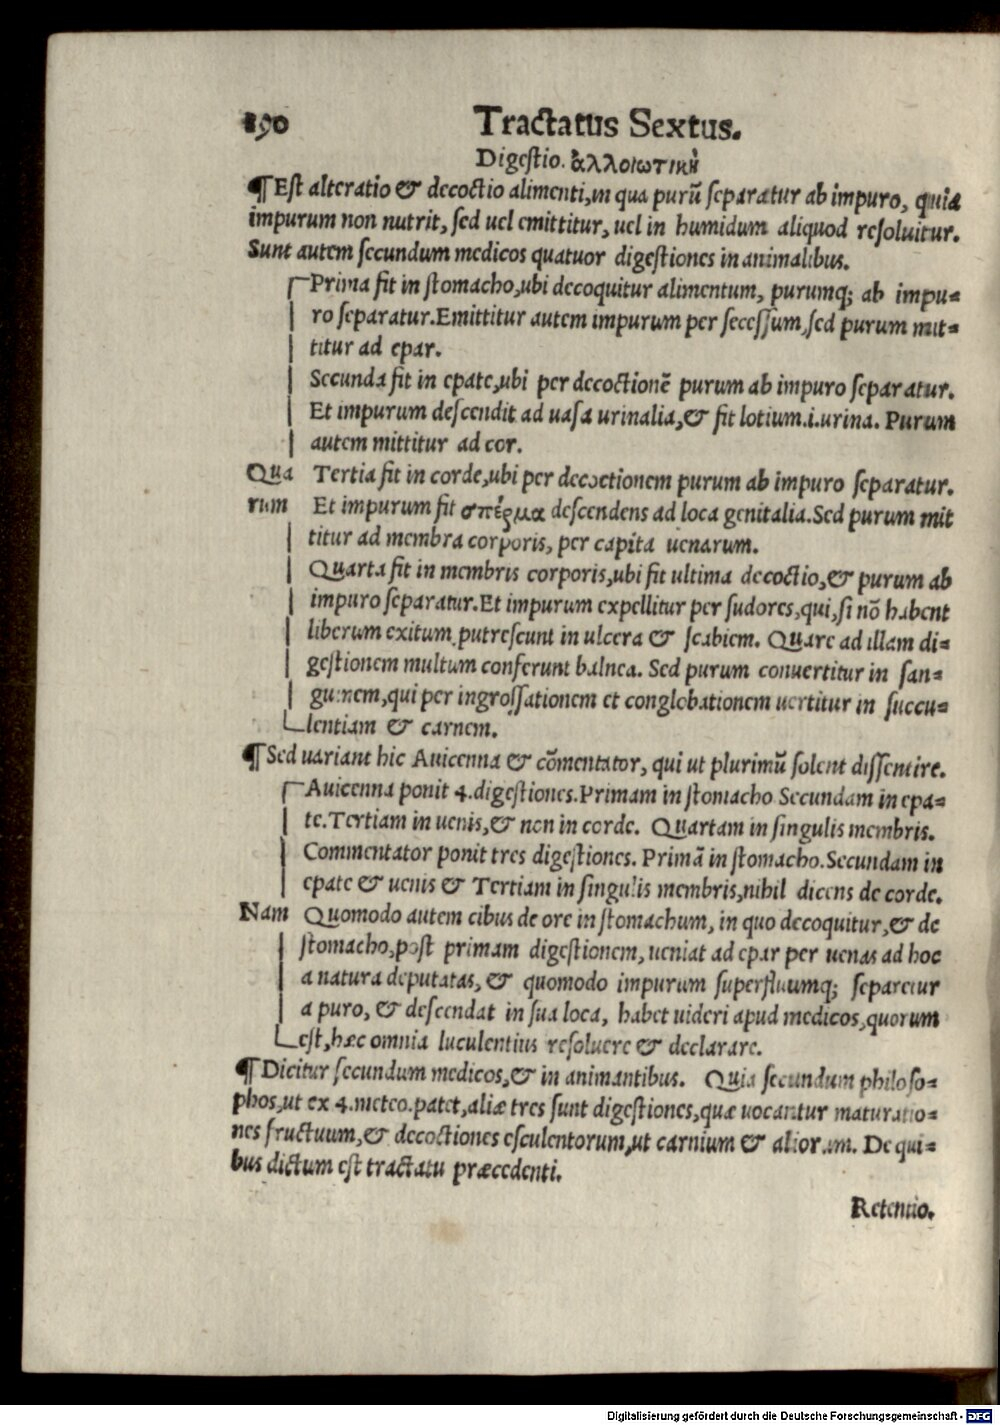 190 Tractatus Sextus.
Digestio. ἀλλοιωτικὴ
¶Est alteratio & decoctio alimenti,in qua purū separatur ab impuro, quia
impurum non nutrit, sed uel emittitur, uel in humidum aliquod resoluitur.
Sunt autem secundum medicos quatuor digestiones in animalibus.
Prima fit in stomacho,ubi decoquitur alimentum, purumq; ab impu=
ro separatur.Emittitur autem impurum per secessum,sed purum mit=
titur ad epar.
Secunda fit in epate,ubi per decoctionē purum ab impuro separatur.
Et impurum descendit ad uasa urinalia,& fit lotium.i.urina. Purum
autem mittitur ad cor.
Qua Tertia fit in corde,ubi per decoctionem purum ab impuro separatur.
rum Et impurum fit σπέρμα descendens ad loca genitalia.Sed purum mit
titur ad membra corporis, per capita uenarum.
Quarta fit in membris corporis,ubi fit ultima decoctio,& purum ab
impuro separatur.Et impurum expellitur per sudores,qui,si nō habent
liberum exitum,putrescunt in ulcera & scabiem. Quare ad illam di=
gestionem multum conferunt balnea. Sed purum conuertitur in san=
guinem,qui per ingrossationem et conglobationem uertitur in succu=
lentiam & carnem.
¶Sed uariant hic Auicenna & cōmentator, qui ut plurimū solent dissentire.
Auicenna ponit 4.digestiones.Primam in stomacho Secundam in epa=
te.Tertiam in uenis,& non in corde. Quartam in singulis membris.
Commentator ponit tres digestiones. Primā in stomacho.Secundam in
epate & uenis & Tertiam in singulis membris,nihil dicens de corde.
Nam Quomodo autem cibus de ore in stomachum, in quo decoquitur,& de
stomacho,post primam digestionem, ueniat ad epar per uenas ad hoc
a natura deputatas, & quomodo impurum superfluumq; separetur
a puro, & descendat in sua loca, habet uideri apud medicos,quorum
est,hæc omnia luculentius resoluere & declarare.
¶Dicitur secundum medicos,& in animantibus. Quia secundum philoso=
phos,ut ex 4.meteo.patet,aliæ tres sunt digestiones,quæ uocantur maturatio=
nes fructuum,& decoctiones esculentorum,ut carnium & aliorum. De qui=
bus dictum est tractatu præcedenti.
Retentio.
Digitalisierung gefördert durch die Deutsche Forschungsgemeinschaft - DFG